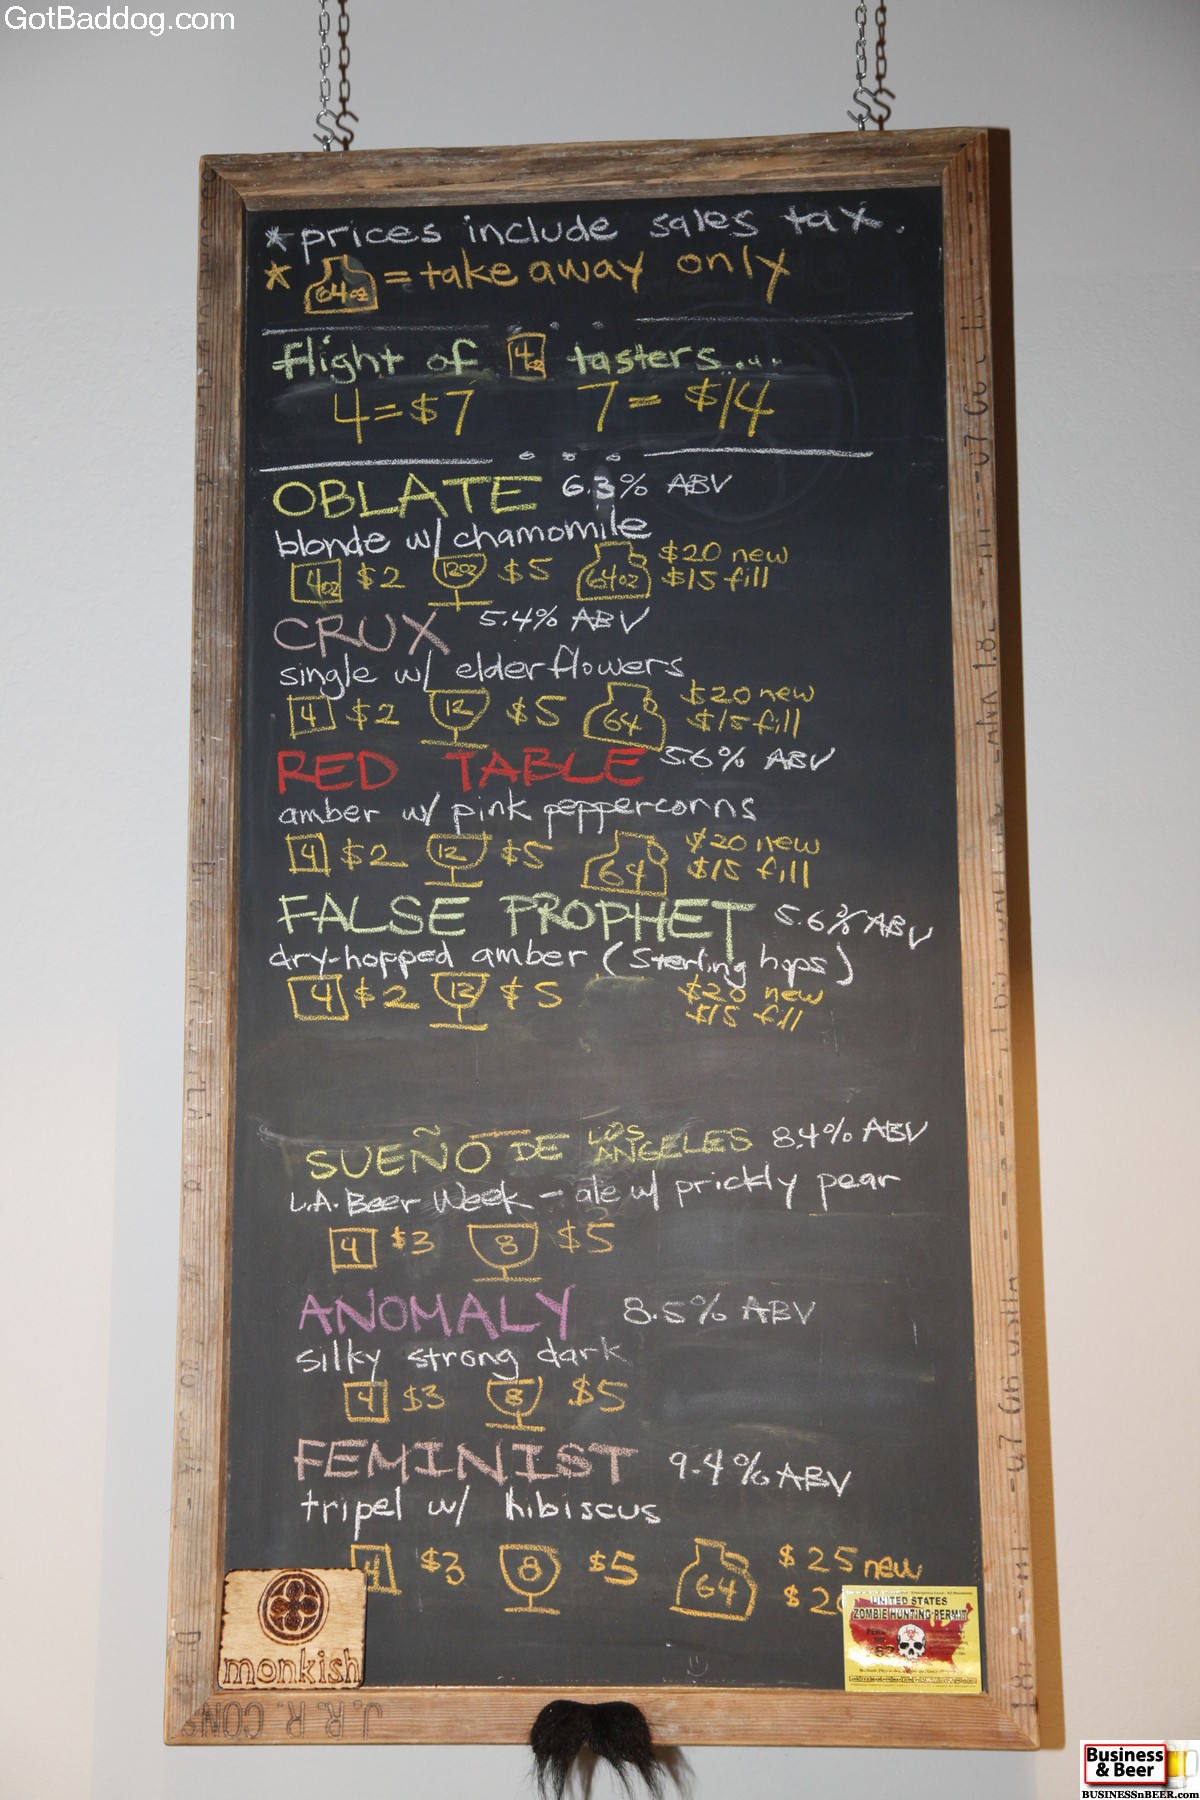 GotBaddog.com
*prices include sales tax.
* 64oz = take away only
flight of 4oz tasters....
4=$7 7=$14
OBLATE 6.3% ABV
blonde w/ chamomile
4oz $2 12oz $5 64oz $20 new
$15 fill
CRUX 5.4% ABV
single w/ elderflowers
4 $2 12 $5 64 $20 new
$15 fill
RED TABLE 5.6% ABV
amber w/ pink peppercorns
4 $2 12 $5 64 $20 new
$15 fill
FALSE PROPHET 5.6% ABV
dry-hopped amber (Sterling hops)
4 $2 12 $5 $20 new
$15 fill
SUEÑO DE LOS ANGELES 8.4% ABV
L.A. Beer Week - ale w/ prickly pear
4 $3 8 $5
ANOMALY 8.5% ABV
silky strong dark
4 $3 8 $5
FEMINIST 9.4% ABV
tripel w/ hibiscus
4 $3 8 $5 64 $25 new
monkish
UNITED STATES
ZOMBIE HUNTING PERMIT
J.R.R. CONS
Business
& Beer
BUSINESSnBEER.com